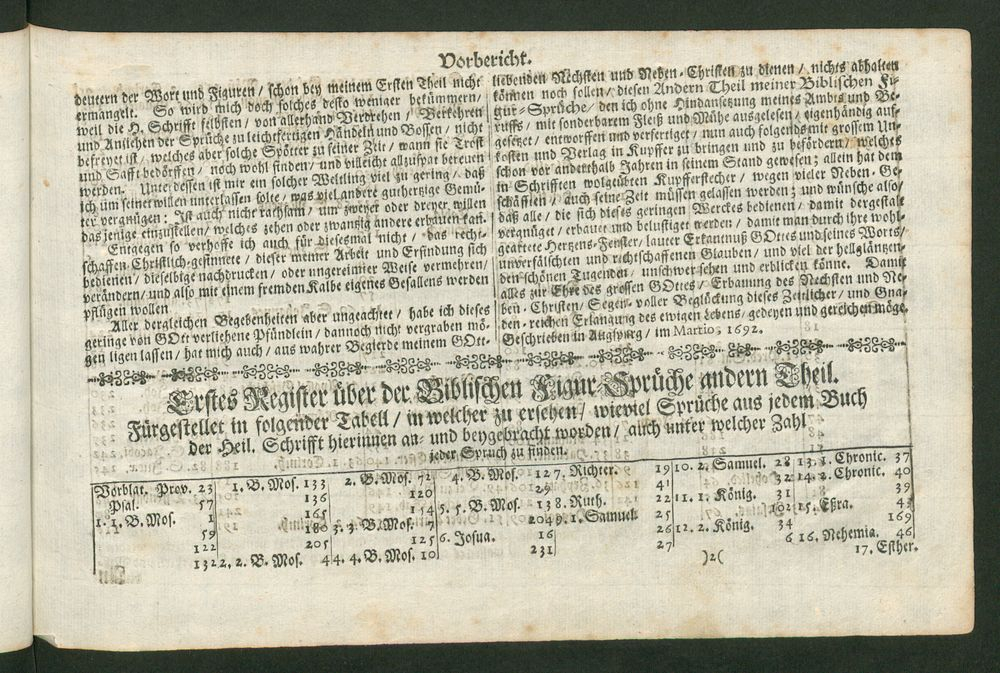 Vorbericht.
deutern der Wort und Figuren / schon bey meinem Ersten Theil nicht
ermangelt. So wird mich doch solches desto weniger bekümmern /
weil die H. Schrifft selbsten / von allerhand Verdrehen / Verkehren
und Anziehen der Sprüche zu leichtfertigen Händeln und Possen / nicht
befreyet ist / welches aber solche Spötter zu seiner Zeit / wann sie Trost
und Safft bedörffen / noch wohl finden / und villeicht allzuspat bereuen
werden. Unterdessen ist mir ein solcher Weltling viel zu gering / daß
ich um seinet willen unterlassen solte / was viel andere guthertzige Gemü-
ter vergnügen: Ist auch nicht rathsam / um zweyer oder dreyer willen
das jenige einzustellen / welches zehen oder zwantzig andere erbauen kan.
Entgegen so verhoffe ich auch für diesesmal nicht / das recht-
schaffen Christlich-gesinnete / dieser meiner Arbeit und Erfindung sich
bedienen / dieselbige nachdrucken / oder ungereimter Weise vermehren /
verändern / und also mit einem fremden Kalbe eigenes Gefallens werden
pflügen wollen
Aller dergleichen Begebenheiten aber ungeachtet / habe ich dieses
geringe von GOtt verliehene Pfündlein / dannoch nicht vergraben mö-
gen ligen lassen / hat mich auch / aus wahrer Begierde meinem GOtt-
liebenden Nechsten und Neben-Christen zu dienen / nichts abhalten
können noch sollen / diesen Andern Theil meiner Biblischen Fi-
gur-Sprüche / den ich ohne Hindansetzung meines Ambts und Be-
ruffs / mit sonderbarem Fleiß und Mühe ausgelesen / eigenhändig auf-
gesetzet / entworffen und verfertiget / nun auch folgends mit grossem Un-
kosten und Verlag in Kupffer zu bringen und zu befördern / welches
schon vor anderthalb Jahren in seinem Stand gewesen; allein hat dem
in Schrifften wolgeübten Kupfferstecher / wegen vieler Neben-Ge-
schäfften / auch seine Zeit müssen gelassen werden; und wünsche also /
daß alle / die sich dieses geringen Werckes bedienen / damit dergestalt
vergnüget / erbauet und belustiget werden / damit man durch ihre wohl-
geartete Hertzens-Fenster / lauter Erkantnuß GOttes und seines Worts /
unverfälschten und richtschaffenen Glauben / und viel der hellgläntzen-
den schönen Tugenden / unschwer sehen und erblicken könne. Damit
alles zur Ehre des grossen GOttes / Erbauung des Nechsten und Ne-
ben-Christen / Segen-voller Beglückung dieses Zeitlicher / und Gna-
den-reichen Erlangung des ewigen Lebens / gedeyen und gereichen möge.
Geschrieben in Augspurg / im Martio, 1692.
Erstes Register über der Biblischen Figur-Sprüche andern Theil.
Fürgestellet in folgender Tabell / in welcher zu ersehen / wieviel Sprüche aus jedem Buch
der Heil. Schrifft hierinnen an- und beygebracht worden / auch unter welcher Zahl
jeder Spruch zu finden.
Vorblat. Prov. 23
Psal. 57
1. 1. B. Mos. 1
59
122
132
1. B. Mos. 133
136
165
180
205
2. 2. B. Mos. 4
2. B. Mos. 72
120
154
3. 3. B. Mos. 7
125
4. 4. B. Mos. 10
4. B. Mos. 12
29
5. 5. B. Mos. 13
204
6. Josua. 16
231
7. Richter. 19
41
8. Ruth. 22
9. 1. Samuel. 25
26
27
10. 2. Samuel. 28
32
11. 1. König. 31
102
12. 2. König. 34
6
13. 1. Chronic. 37
14. 2. Chronic. 40
39
15. Eßra. 43
169
16. Nehemia. 46
)2(
17. Esther.